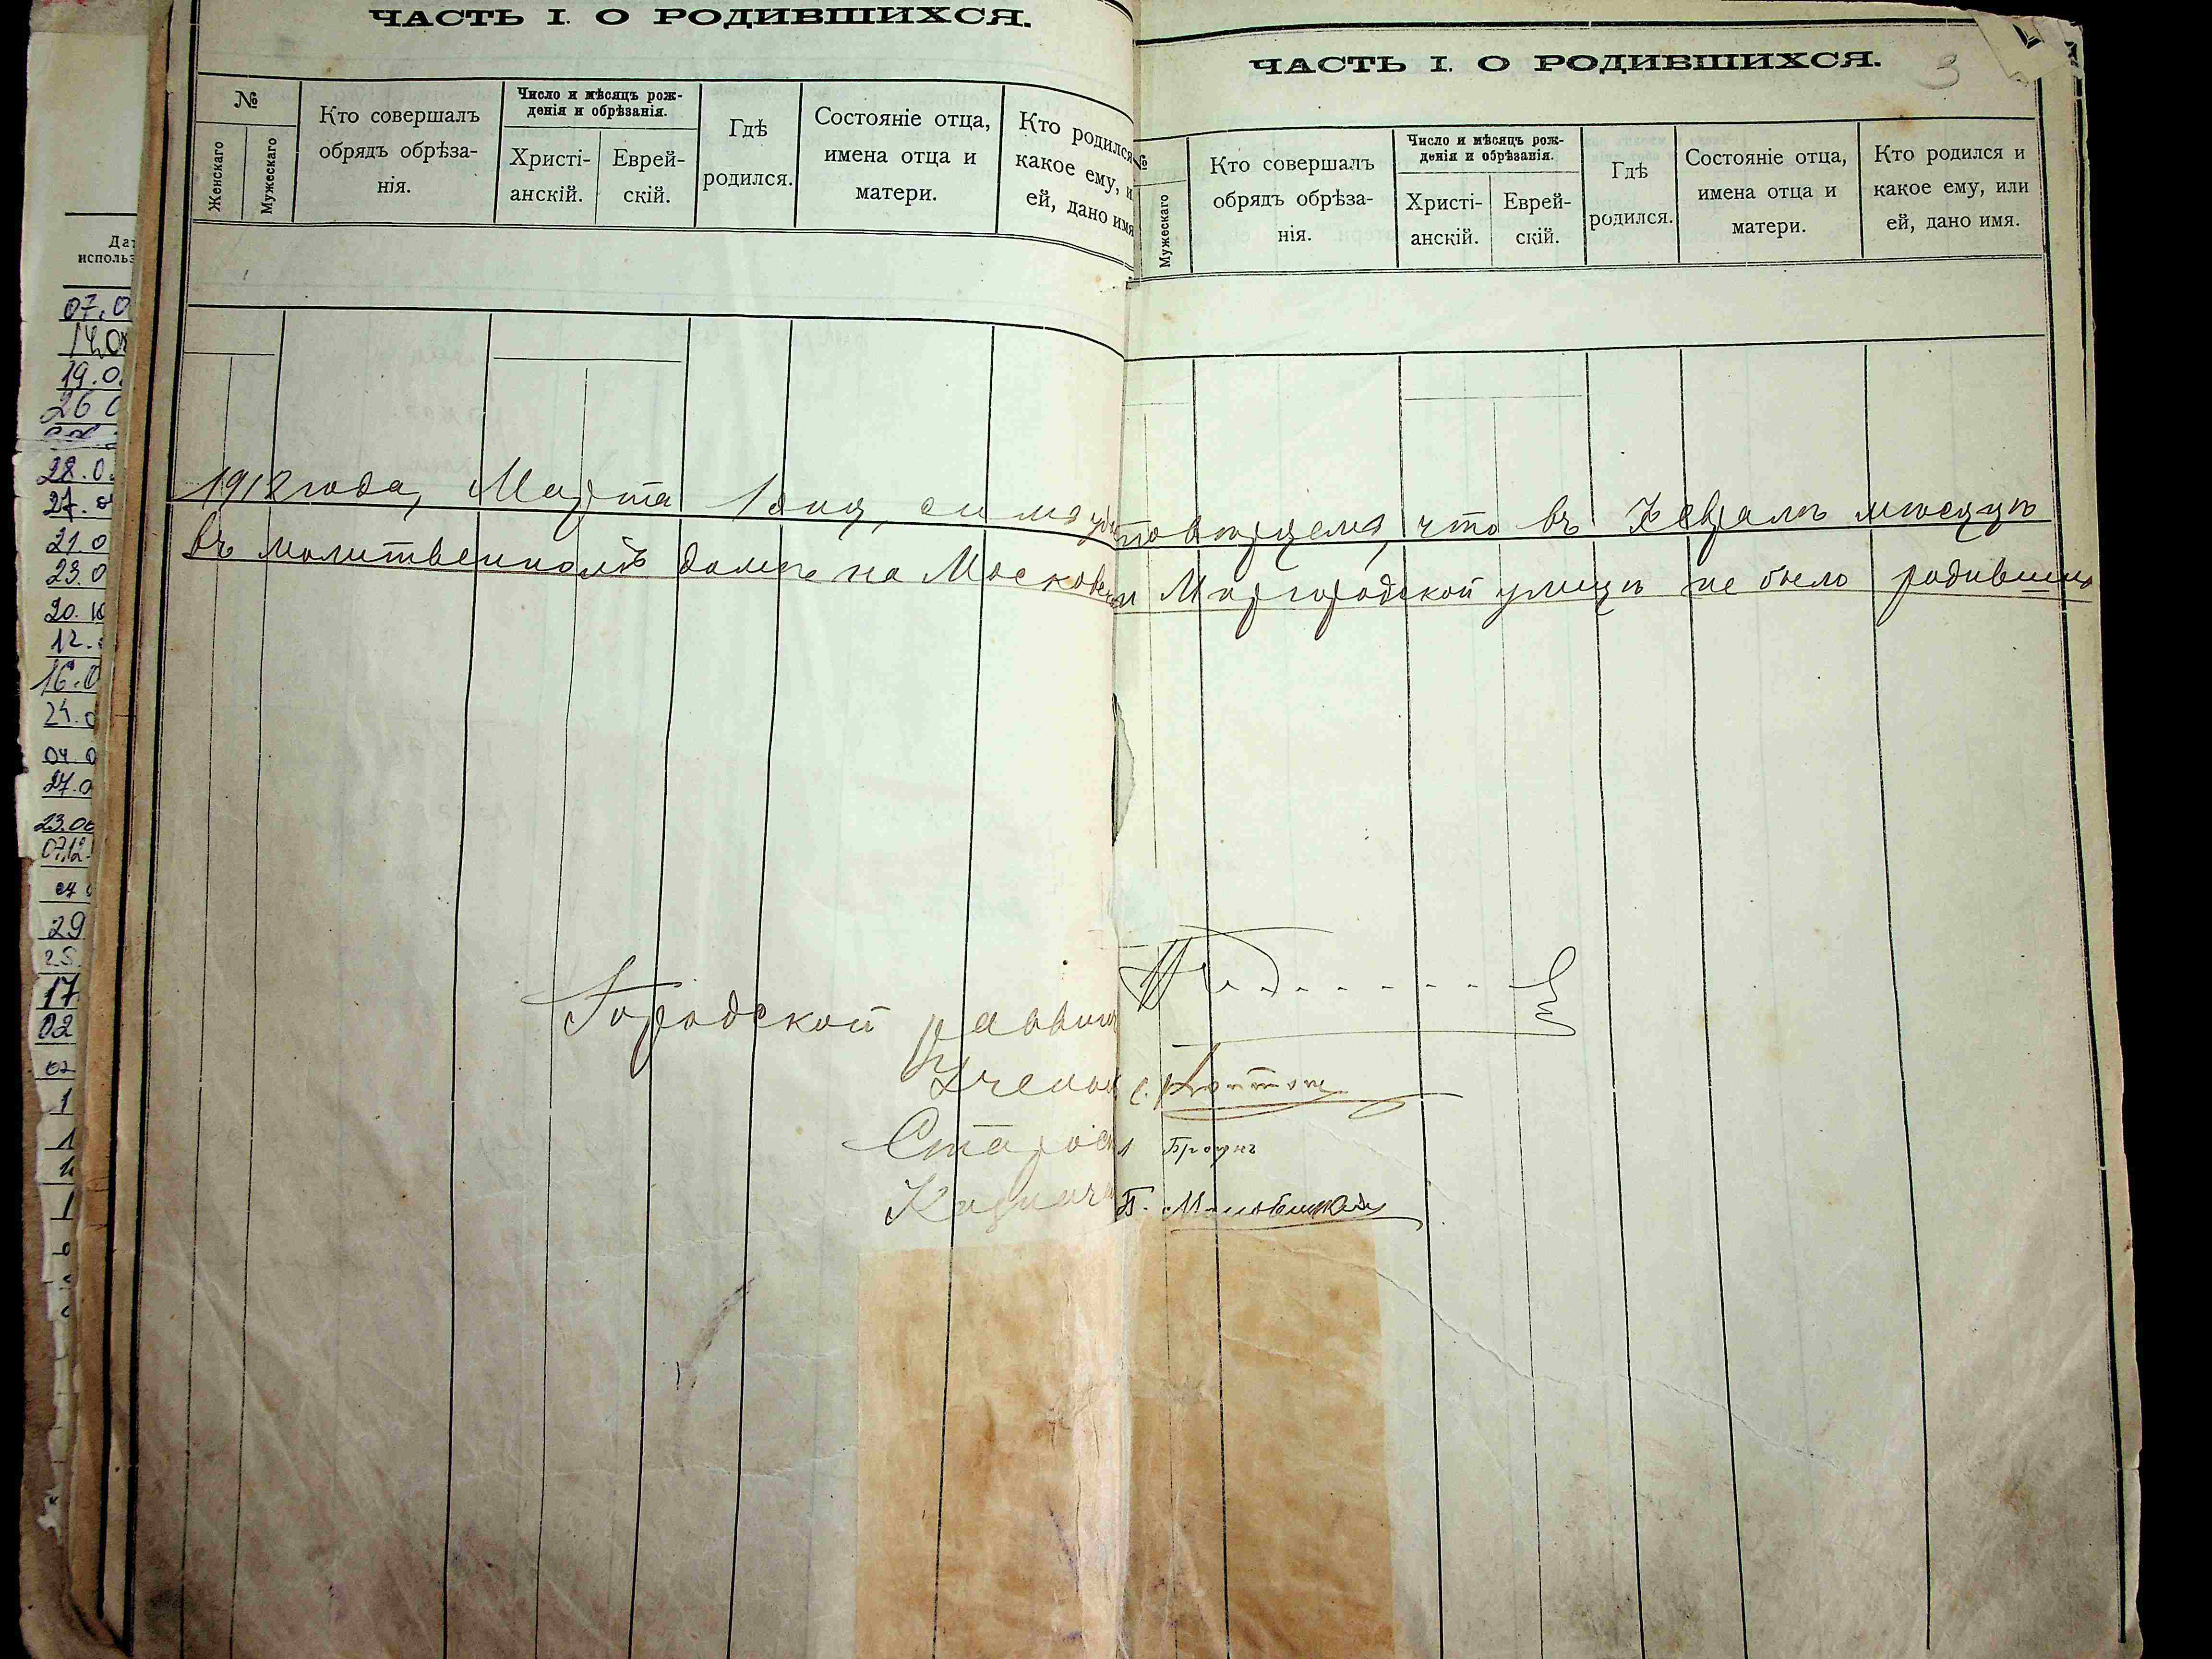 ЧАСТЬ I. О РОДИВШИХСЯ.
№
Женскаго
Мужескаго
Кто совершалъ
обрядъ обрѣза-
нія.
Число и мѣсяцъ рож-
денія и обрѣзанія.
Христі-
анскій.
Еврей-
скій.
Гдѣ
родился.
Состояніе отца,
имена отца и
матери.
Кто родился
какое ему, и
ей, дано имя
ЧАСТЬ I. О РОДИВШИХСЯ.
3
№
Мужескаго
Кто совершалъ
обрядъ обрѣза-
нія.
Число и мѣсяцъ рож-
денія и обрѣзанія.
Христі-
анскій.
Еврей-
скій.
Гдѣ
родился.
Состояніе отца,
имена отца и
матери.
Кто родился и
какое ему, или
ей, дано имя.
1918 года, Марта 1 дня, симъ удостовѣряемъ, что въ Февралѣ мѣсяцѣ
въ молитвенномъ домѣ на Московской Миргородской улицѣ не было родивших
Городской раввин
Ученый
Староста Браунъ
Казначей
Дат
использ
07.0
19.0
26 0
28.0
27.0
21.0
23.0
20.10
12.
16.0
24.0
04.0
27.0
23.06
07.12.
04 0
29
25.
17
02
02
1
1